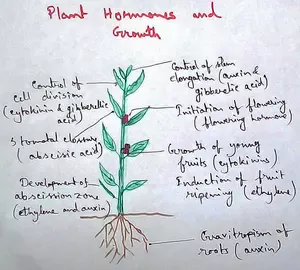 Plant Hormones and
Growth
Control of stem
elongation (auxin &
gibberellic acid)
Control of
cell division
(cytokinin & gibberellic
acid)
Initiation of flowering
(flowering hormone)
Stomatal closure
(abscissic acid)
Growth of young
fruits (cytokinins)
Induction of fruit
ripening (ethylene)
Development of
abscission zone
(ethylene and auxin)
Gravitropism of
roots (auxin)